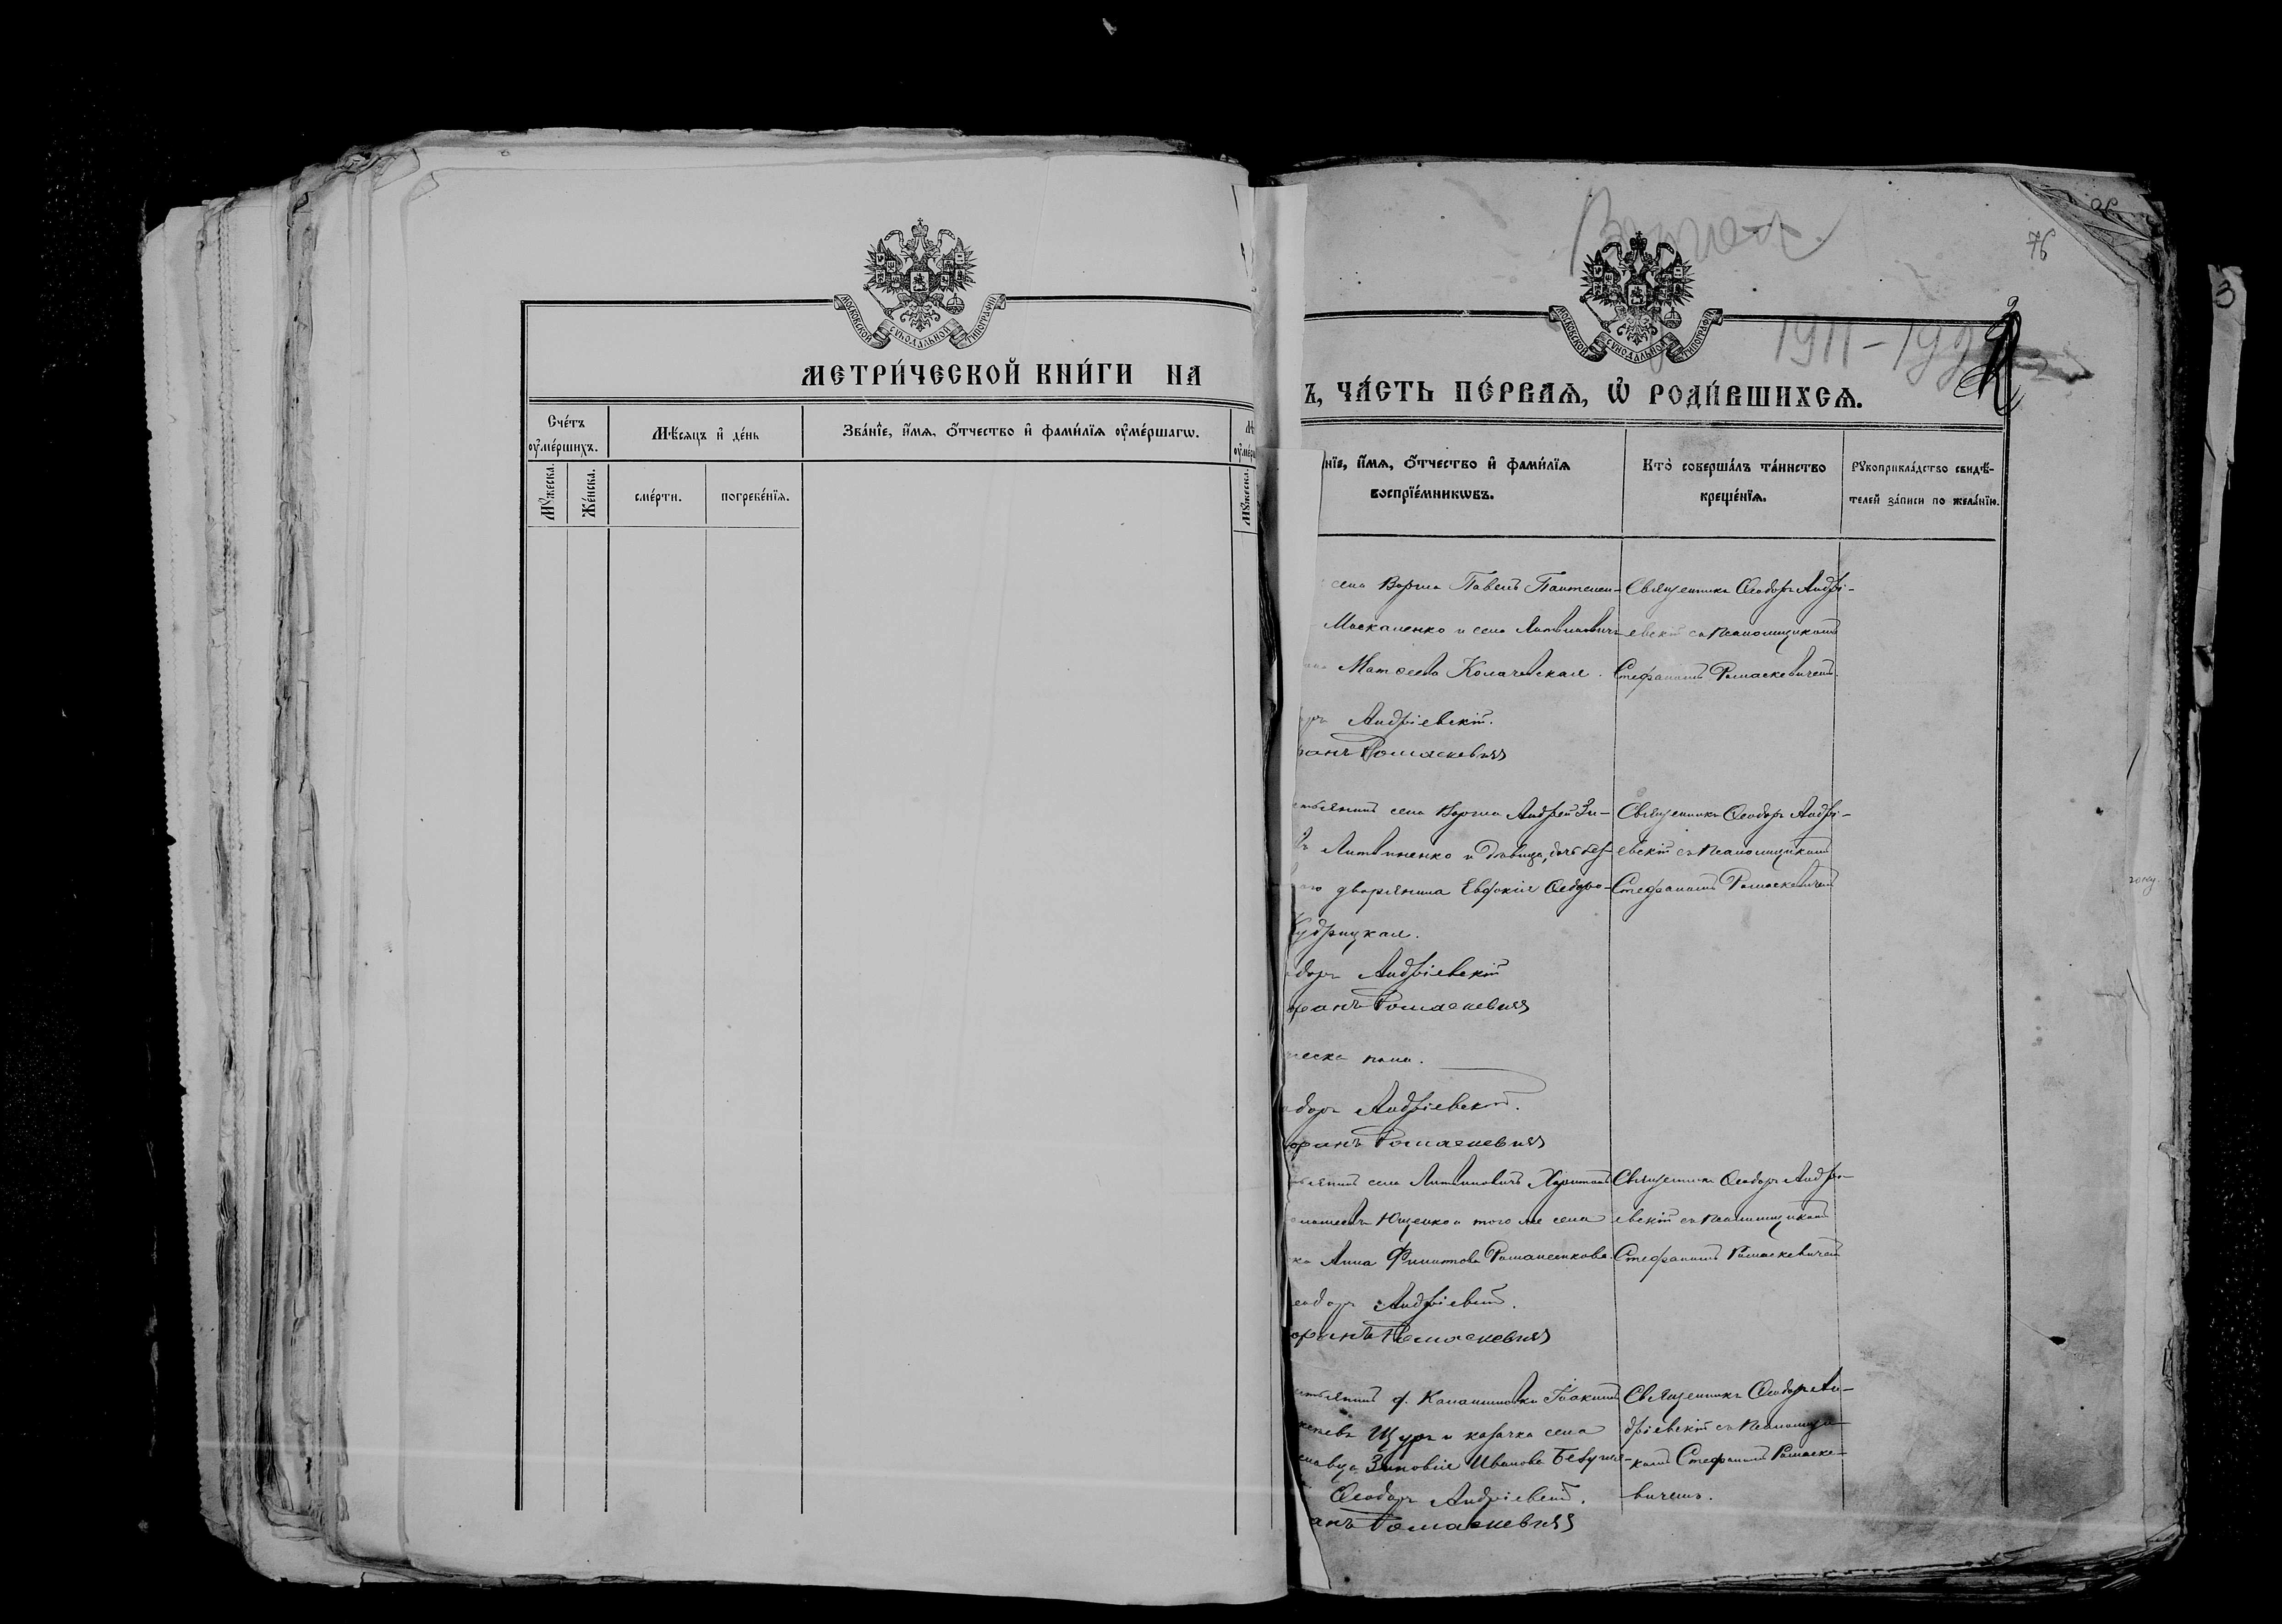 МОСКОВСКОЙ СѴНОДАЛЬНОЙ ТИПОГРАФІИ
МЕТРИ́ЧЕСКОЙ КНИ́ГИ НА
Сче́тъ
оу҆ме́ршихъ.
Мѣ́сяцъ и҆ де́нь
Зва́нїе, и҆́мѧ, ѻ҆́тчество и҆ фами́лїѧ оу҆ме́ршагѡ.
Мꙋ́жеска.
Же́нска.
сме́рти.
погребе́нїѧ.
Мꙋ́жеска.
76
МОСКОВСКОЙ СѴНОДАЛЬНОЙ ТИПОГРАФІИ
1911-19
Ъ, ЧА́СТЬ ПЕ́РВАѦ, Ѡ҆ РОДИ́ВШИХСѦ.
нїе, и҆́мѧ, ѻ҆́тчество и҆ фами́лїѧ
воспрїе́мникѡвъ.
Кто̀ соверша́лъ та́инство
креще́нїѧ.
Рꙋкоприкла́дство свидѣ́-
телей за́писи по жела́нїю.
села Воргла Павелъ Пантелеи-
Москаленко и села Литвиновичъ
Матѳеева Колачевская.
Священникъ Ѳеодоръ Андрі-
евскій съ псаломщикомъ
Стефаномъ Ромаскевичемъ.
Андріевскій.
анъ Ромаскевичъ
села Воргла Андрей Зи-
Литвиненко и дѣвица, дочь
дворянина Евдокія Ѳеодо-
Кудрицкая.
Священникъ Ѳеодоръ Андрі-
евскій съ псаломщикомъ
Стефаномъ Ромаскевичемъ
доръ Андріевскій
фанъ Ромаскевичъ
ческа пола.
одоръ Андріевскій.
фанъ Ромаскевичъ
села Литвиновичъ Харитонъ
Ющенко и того же села
ка Анна Филиппова Романенкова.
Священникъ Ѳеодоръ Андрі-
евскій съ псаломщикомъ
Стефаномъ Ромаскевичемъ
еодоръ Андріевскій.
фанъ Ромаскевичъ
д. Калашиновки Іоакимъ
Щуръ и козачка села
Зиновія Иванова
Священникъ Ѳеодоръ Ан-
дріевскій съ псаломщи-
комъ Стефаномъ Ромаске-
вичемъ.
Ѳеодоръ Андріевскій.
анъ Ромаскевичъ
3